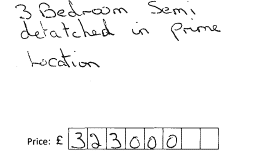 3 Bedroom Semi
detatched in prime
Location
Price: £ 323000